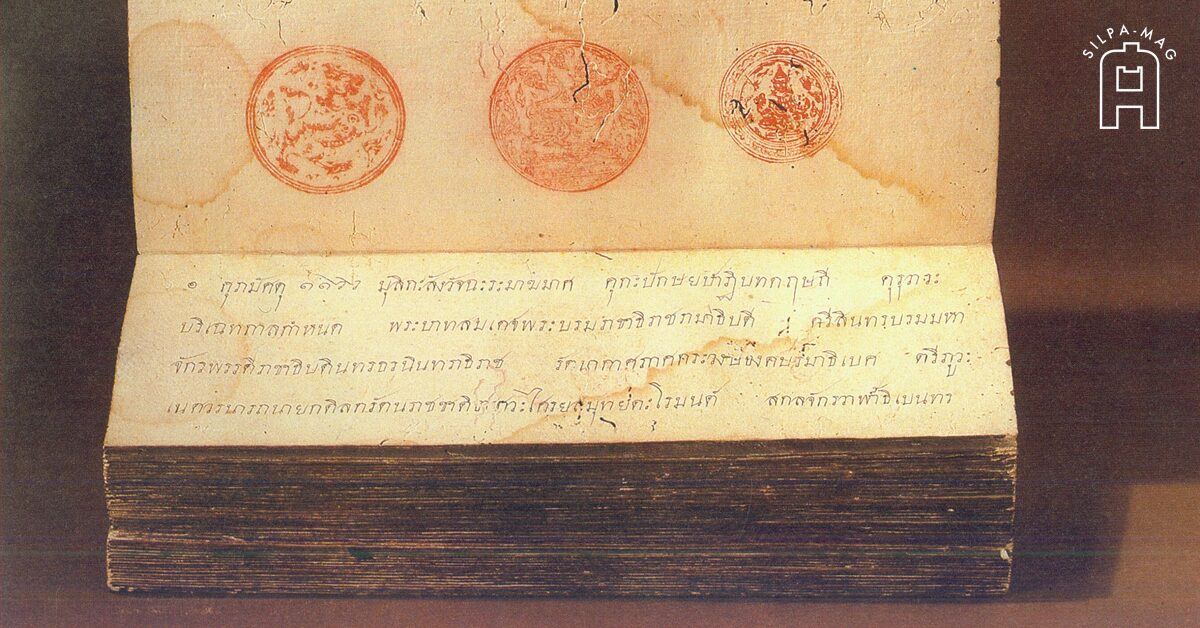 SILPA-MAG
๏ ศุภมัศดุ ๑๑๖๖ มุสิกะสังวัจฉะระมาฆมาศ ศุกะปักษยปาฏิบทดฤษถี คุรุวาระ
บริเฉทกาลกำหนด พระบาทสมเดจพระบรมราชาธิราชรามาธิบดี ศรีสินทรบรมมหา
จักรพรรดิราชาธิบดินทรธรนินทราธิราช รัตนากาศภาศกระวงษองคปรมาธิเบศ ตรีภูวะ
เนศวรนารถนายกดิลกรัตนราชชาติ สมุทยดะโรมนต์ สกลจักรวาฬาธิเบนทร